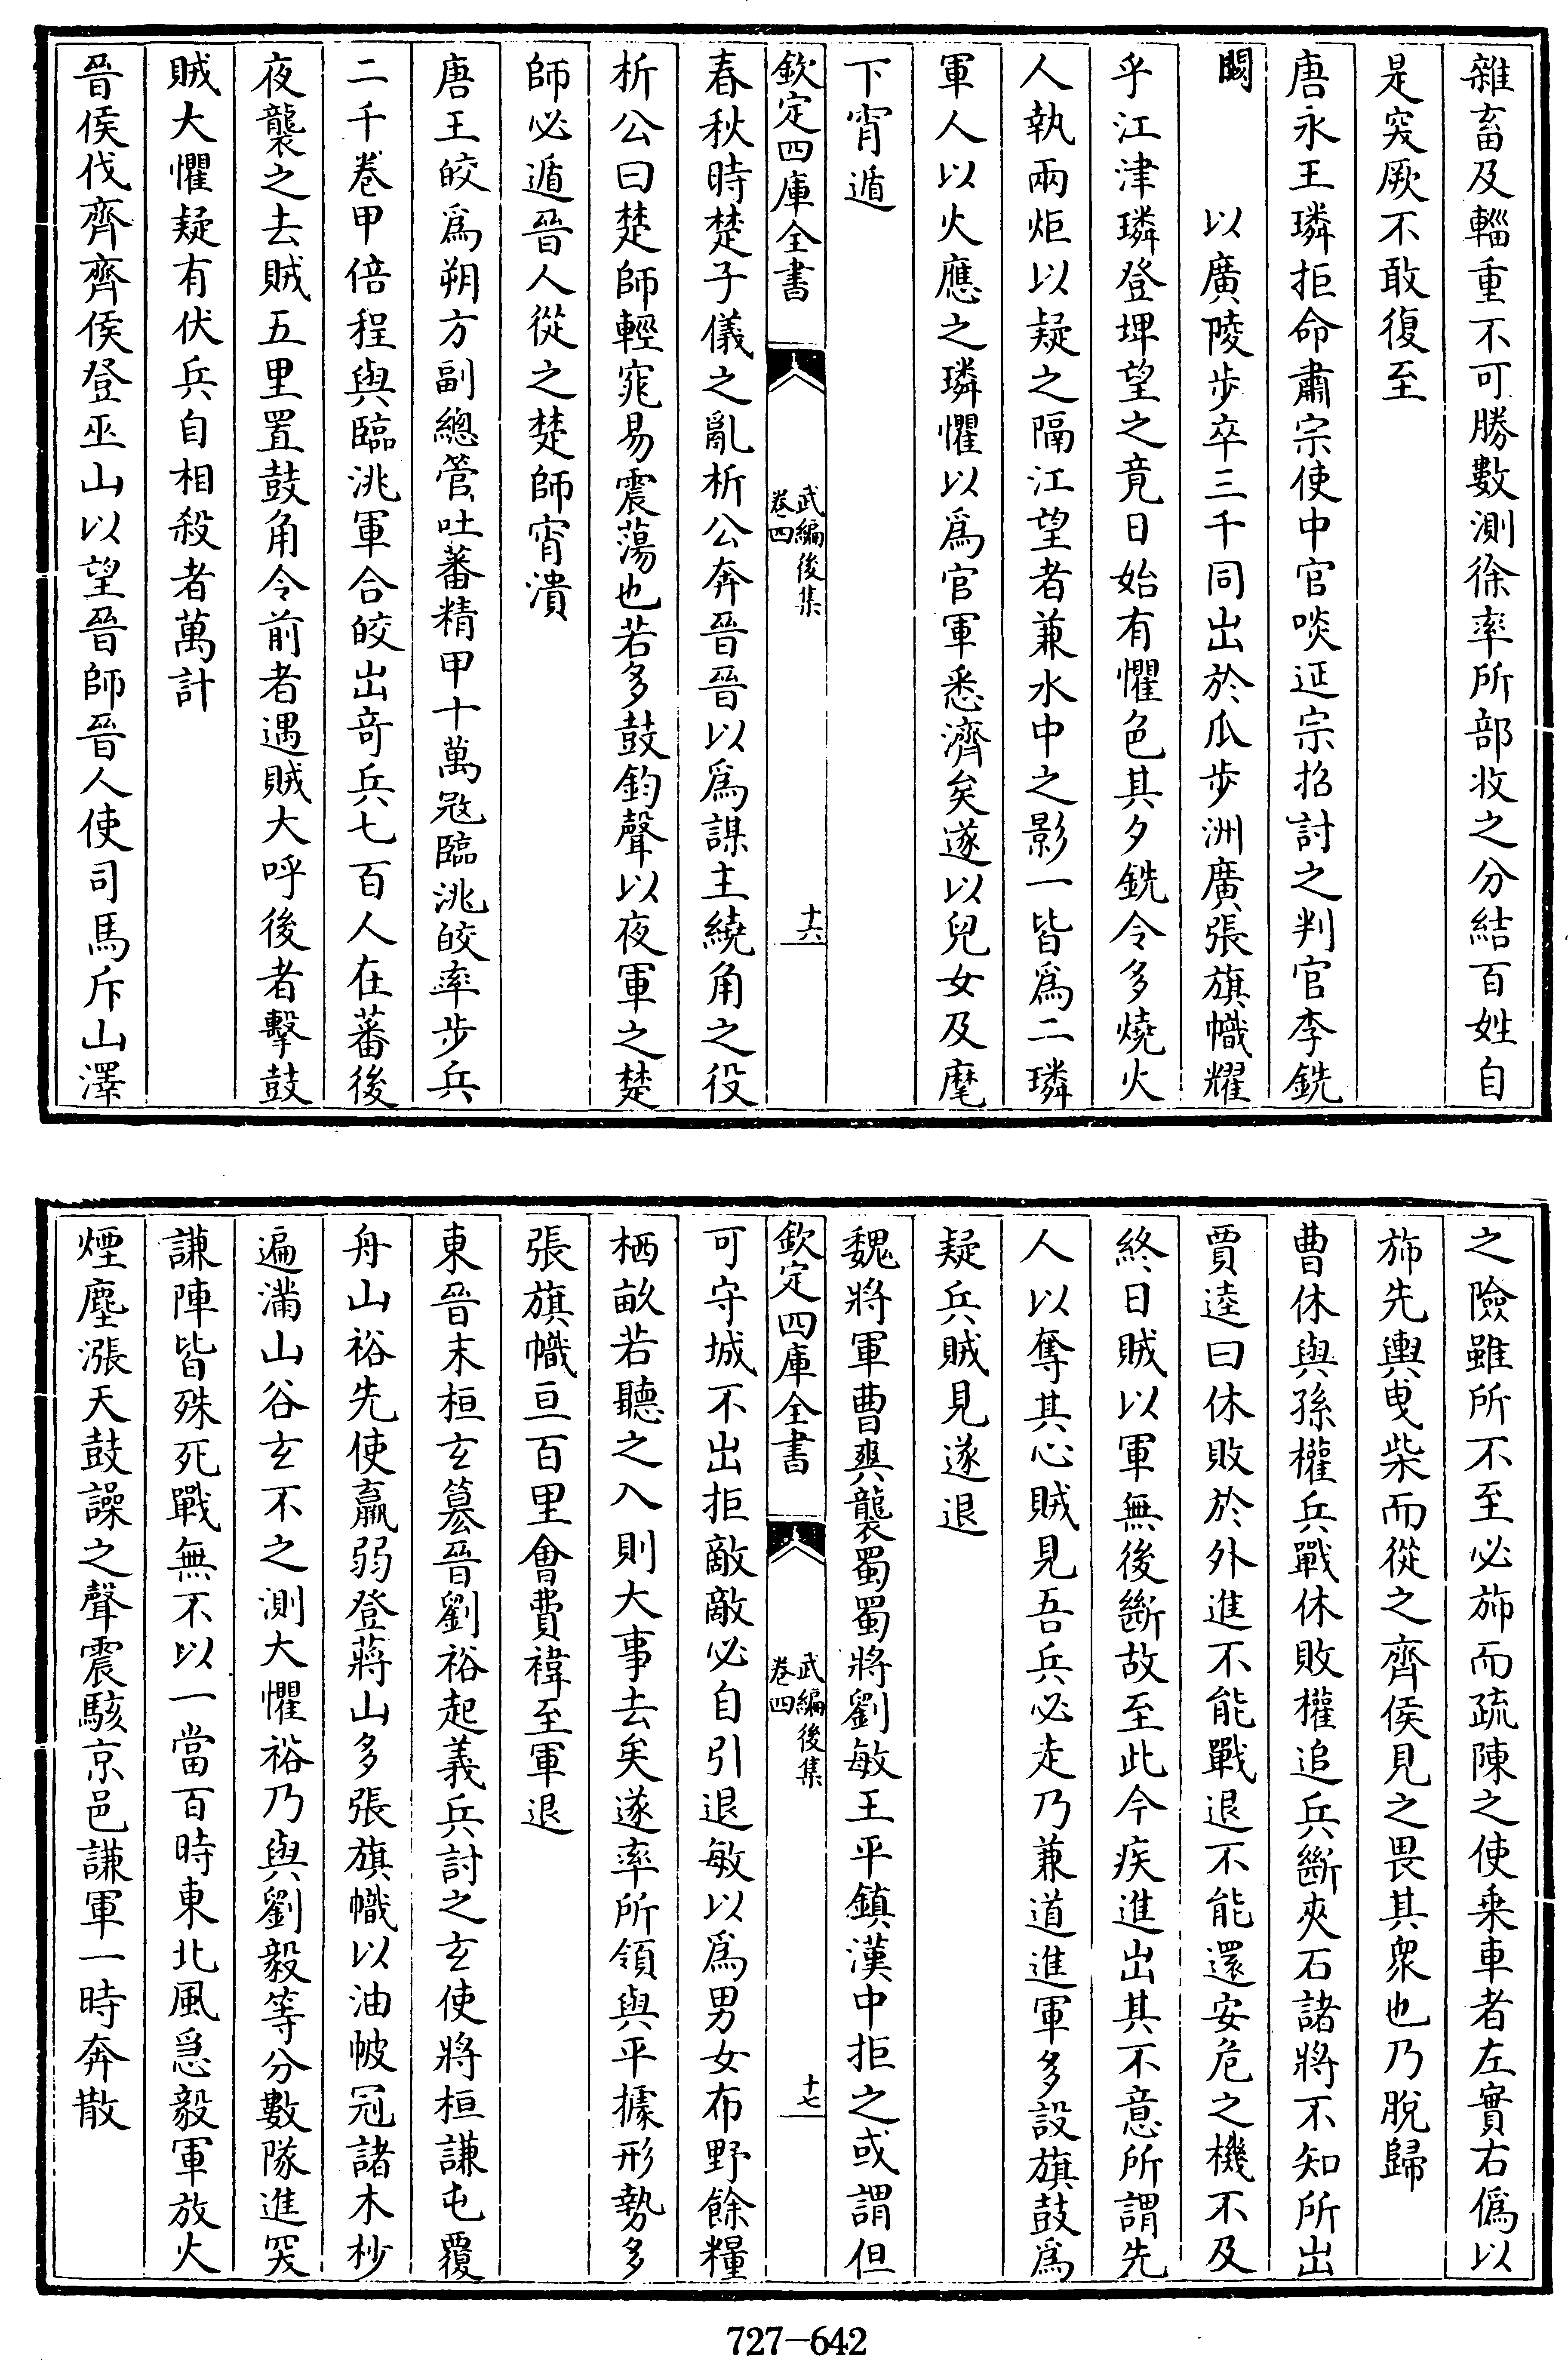 雜畜及輜重不可勝數測徐率所部收之分結百姓自
是突厥不敢復至
唐永王璘拒命肅宗使中官啖廷宗招討之判官李銑
闕　　以廣陵步卒三千同出於瓜步洲廣張旗幟耀
乎江津璘登埤望之竟日始有懼色其夕銑令多燒火
人執兩炬以疑之隔江望者兼水中之影一皆爲二璘
軍人以火應之璘懼以爲官軍悉濟矣遂以兒女及麾
下宵遁
欽定四庫全書
武編後集
卷四
十六
春秋時楚子儀之亂析公奔晉晉以爲謀主繞角之役
析公曰楚師輕窕易震蕩也若多鼓鈞聲以夜軍之楚
師必遁晉人從之楚師宵潰
唐王晈爲朔方副總管吐蕃精甲十萬冦臨洮晈率步兵
二千卷甲倍程與臨洮軍合晈出奇兵七百人在蕃後
夜襲之去賊五里置鼓角令前者遇賊大呼後者擊鼓
賊大懼疑有伏兵自相殺者萬計
晉侯伐齊齊侯登巫山以望晉師晉人使司馬斥山澤
之險雖所不至必斾而疏陳之使乗車者左實右僞以
斾先輿曵柴而從之齊侯見之畏其衆也乃脫歸
曹休與孫權兵戰休敗權追兵斷夾石諸將不知所出
賈逵曰休敗於外進不能戰退不能還安危之機不及
終日賊以軍無後斷故至此今疾進出其不意所謂先
人以奪其心賊見吾兵必走乃兼道進軍多設旗鼓爲
疑兵賊見遂退
魏將軍曹爽襲蜀蜀將劉敏王平鎮漢中拒之或謂但
欽定四庫全書
武編後集
卷四
十七
可守城不出拒敵敵必自引退敏以爲男女布野餘糧
栖畝若聽之入則大事去矣遂率所領與平據形勢多
張旗幟亘百里會費禕至軍退
東晉末桓玄簒晉劉裕起義兵討之玄使將桓謙屯覆
舟山裕先使羸弱登蔣山多張旗幟以油帔冠諸木杪
遍滿山谷玄不之測大懼裕乃與劉毅等分數隊進突
謙陣皆殊死戰無不以一當百時東北風急毅軍放火
煙塵漲天鼓譟之聲震駭京邑謙軍一時奔散
727-642